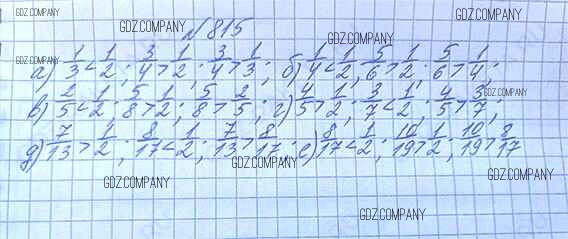 GDZ.COMPANY GDZ.COMPANY GDZ.COMPANY
№ 815
GDZ.COMPANY
а) 1/3 < 1/2; 3/4 > 1/2; 3/4 > 1/3; б) 1/4 < 1/2; 5/6 > 1/2; 5/6 > 1/4;
GDZ.COMPANY
в) 2/5 < 1/2; 5/8 > 1/2; 5/8 > 2/5; г) 4/5 > 1/2; 3/7 < 1/2; 4/5 > 3/7;
GDZ.COMPANY
д) 7/13 > 1/2; 8/17 < 1/2; 7/13 > 8/17; е) 8/17 < 1/2; 10/19 > 1/2; 10/19 > 8/17
GDZ.COMPANY
GDZ.COMPANY GDZ.COMPANY
GDZ.COMPANY